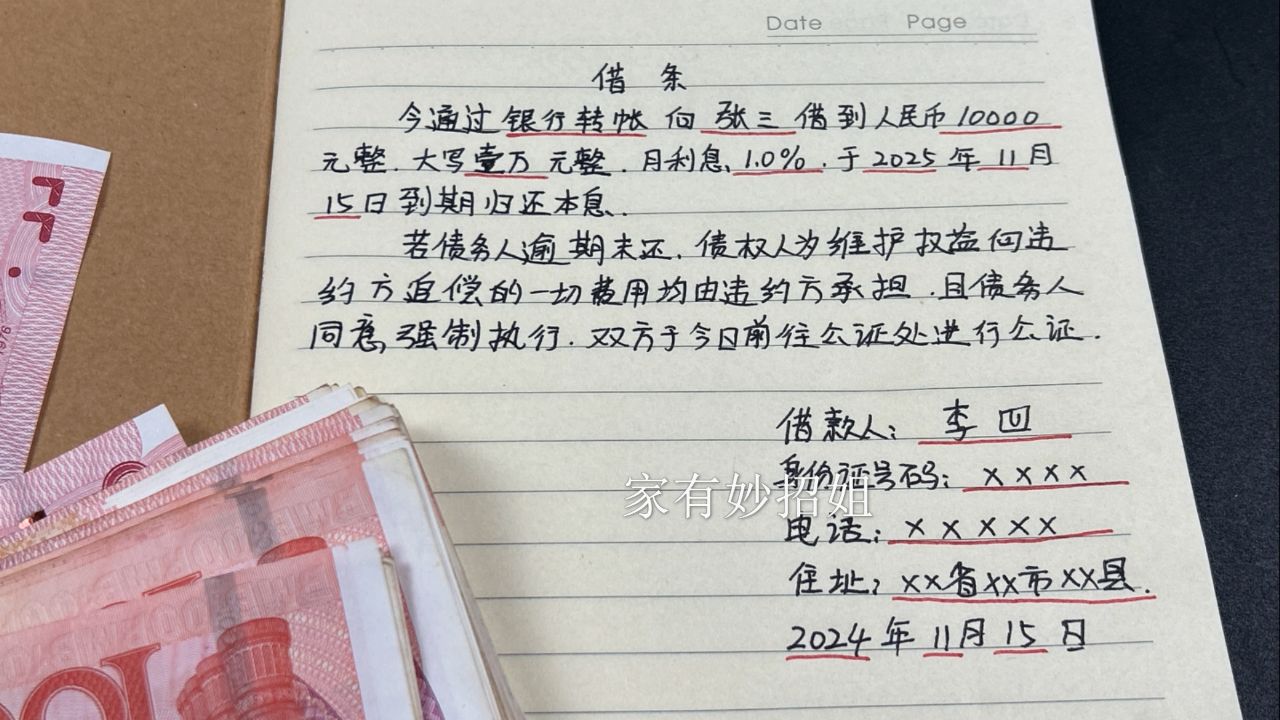 Date Page
借 条
今通过 银行转帐 向 张三 借到人民币 10000
元整.大写壹万元整.月利息 1.0%.于 2025 年 11 月
15日到期归还本息.
若债务人逾期未还.债权人为维护权益向违
约方追偿的一切费用均由违约方承担.且债务人
同意强制执行.双方于今日前往公证处进行公证.
借款人: 李四
身份证号码: ××××
家有妙招姐
电话: ×××××
住址: ××省××市××县.
2024 年 11月 15 日